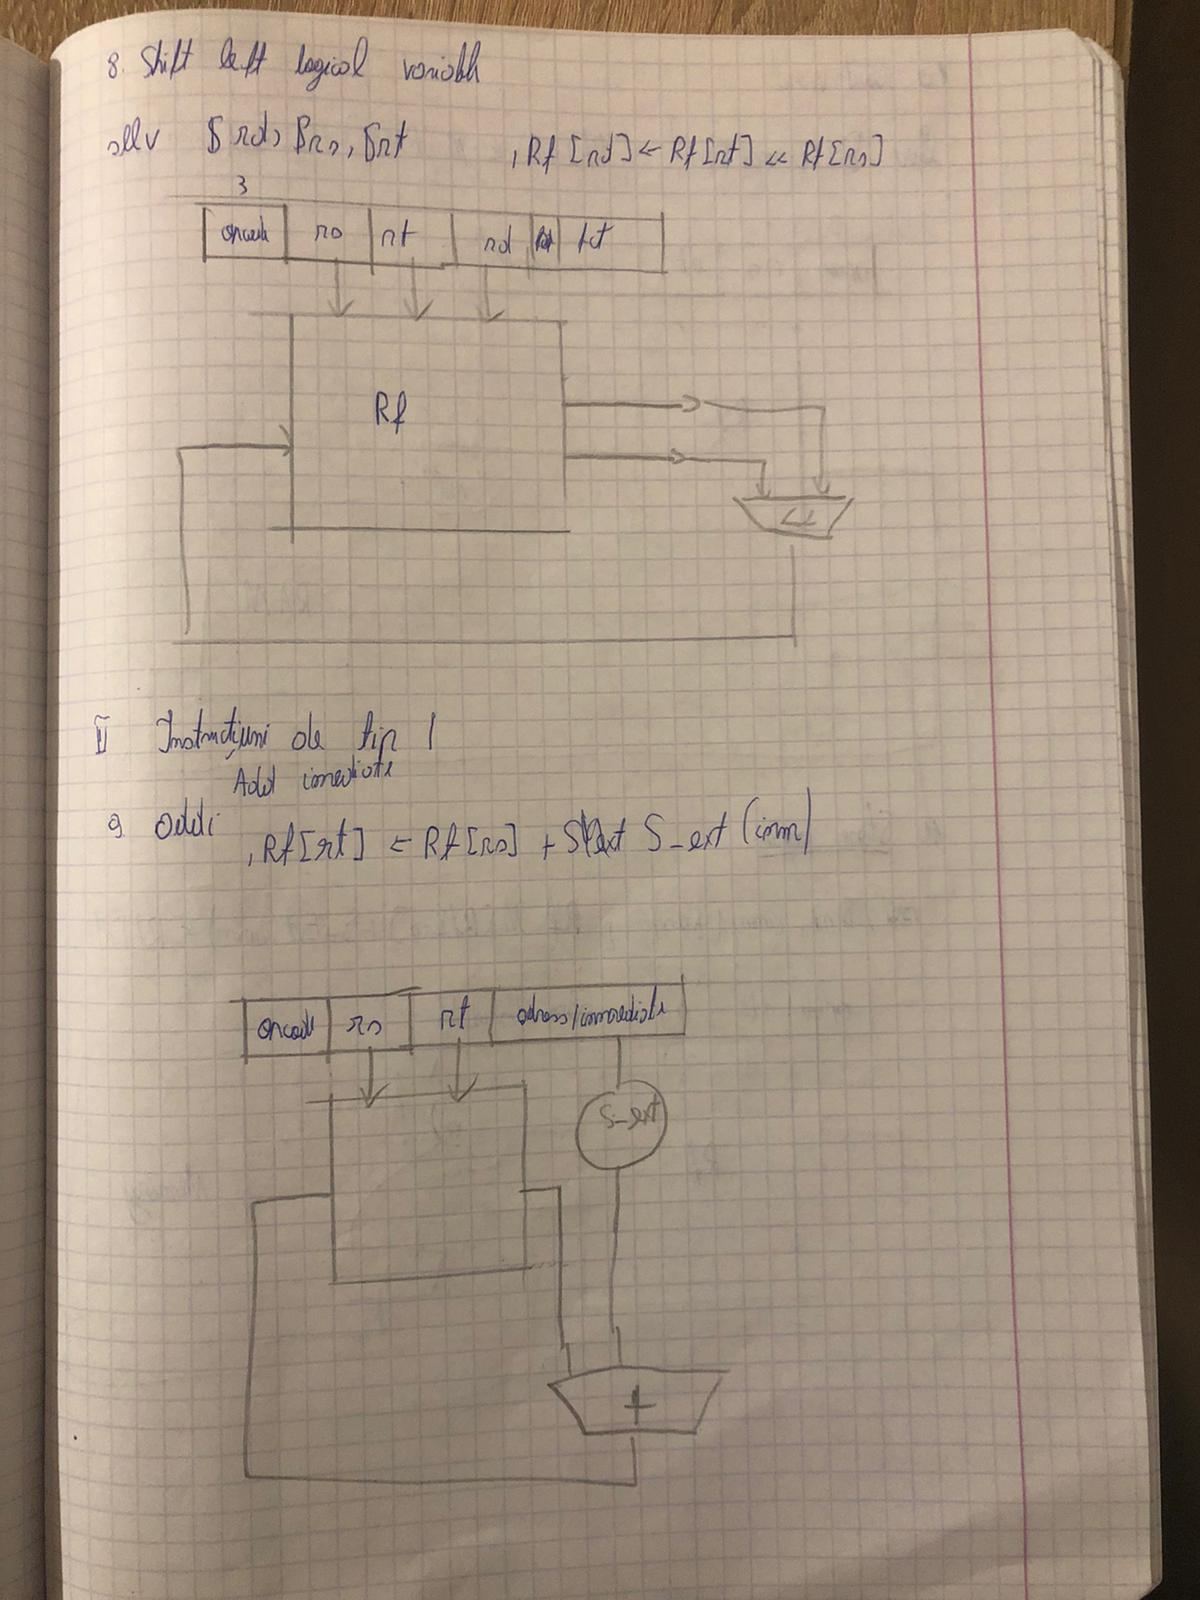 8. Shift left logical variabh
sllv $rd, $rs, $rt , Rf[rd] ← Rf[rt] << Rf[rs]
3
opcode rs rt rd fct
Rf
<<
II Instrucțiuni de tip I
Add imediate
9. addi , Rf[rt] ← Rf[rs] + S_ext (imm)
opcode rs rt adress/immediate
S_ext
+